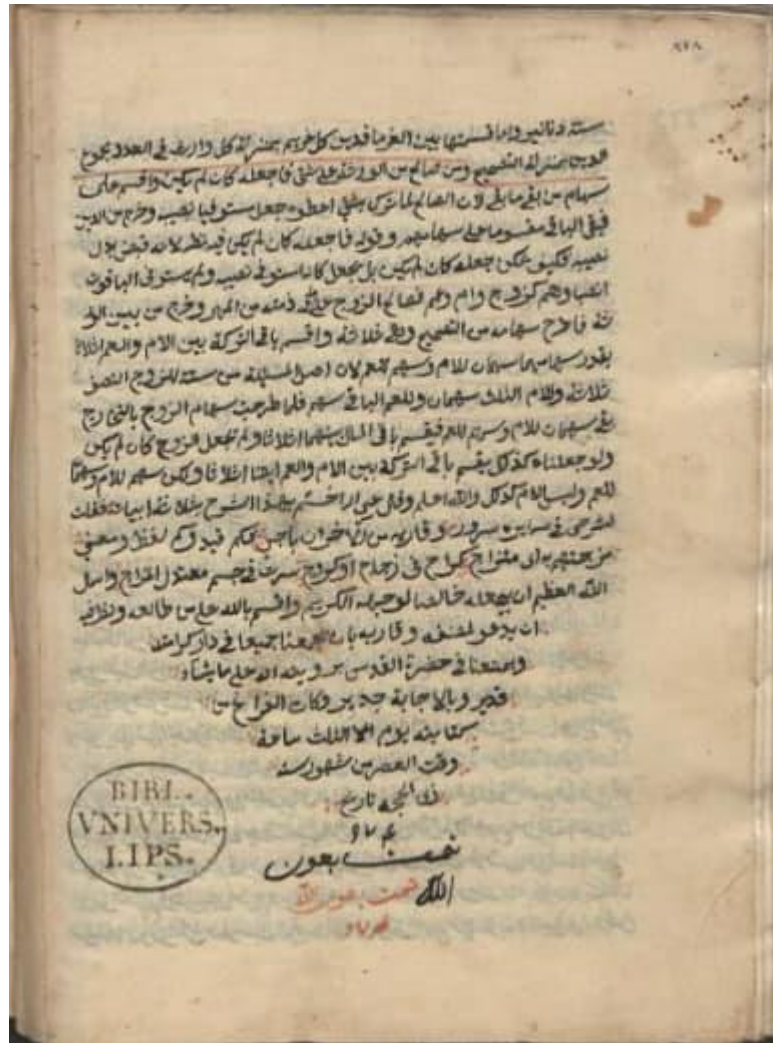 ٩٢٨
ستة دنانير واما قسمتها بين الغرما فدين كل غريم بمنزلة كل وارث في العدد مجموع
الديون بمنزلة التصحيح ومن صالح من الورثة على شي فاجعله كان لم يكن واقسم على
سهام من بقي ما بقي لان الصالح لما بشي اعطوه جعل مستوفيا نصيبه وخرج من البين
فبقي الباقي مقسوما على سهامهم وقوله فاجعله كان لم يكن فيه نظر لانه قبض بدل
نصيبه فكيف يمكن جعله كان لم يكن بل يجعل كانه استوفى نصيبه ولم يستوف الباقون
انصباوهم كزوج وام وعم فصالح الزوج على ما في ذمته من المهر وخرج من بين الور
ثة فاطرح سهامه من التصحيح وهي ثلاثة واقسم باقي التركة بين الام والعم اثلاثا
بقدر سهامهما سهمان للام وسهم للعم لان اصل المسئلة من ستة للزوج النصف
ثلاثة وللام الثلث سهمان وللعم الباقي سهم فلما طرحت سهام الزوج بالتخارج
بقي سهمان للام وسهم للعم فيقسم باقي المال بينهما اثلاثا ولم تجعل الزوج كان لم يكن
ولو جعلناه كذلك يقسم باقي التركة بين الام والعم ايضا اثلاثا ولكن سهم للام وسهمان
للعم وليس الامر كذلك والله اعلم وقال اختم هذا الشرح بثلاثة ابيات فقلت
لشرحي في سرور وقاريه من
العظيم ان يجعله خالصا لوجهه الكريم واقسم بالله على من طالعه ونظر فيه
ان يدعو لمصنفه وقاريه بان يجمعنا جميعا في دار كرامته
ويمتعنا في حضرة القدس انه على ما يشاء
قدير وبالاجابة جدير وكان الفراغ من
كتابته يوم الثلث ساعة
وقت العصر من شهور سنة
ذي الحجة تاريخ
تمت بعون
الله
تمت بعون الله
BIBL.
VNIVERS.
LIPS.